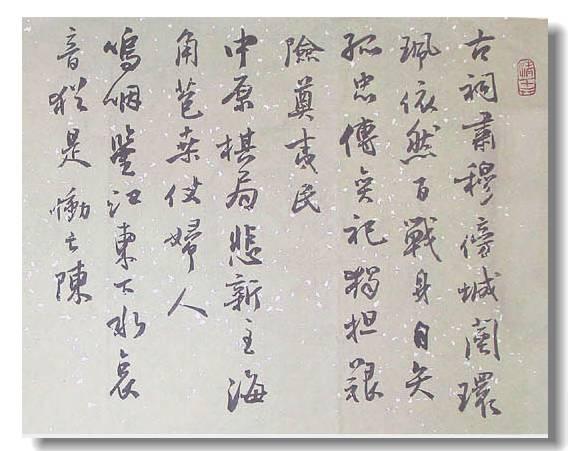 古祠肅穆傍城闉環
珮依然百戰身自矢
孤忠傳奕祀獨担艱
險奠夷民
中原棋局悲新主海
角苞桑仗婦人
嗚咽鑒江東下水哀
音猶是慟亡陳